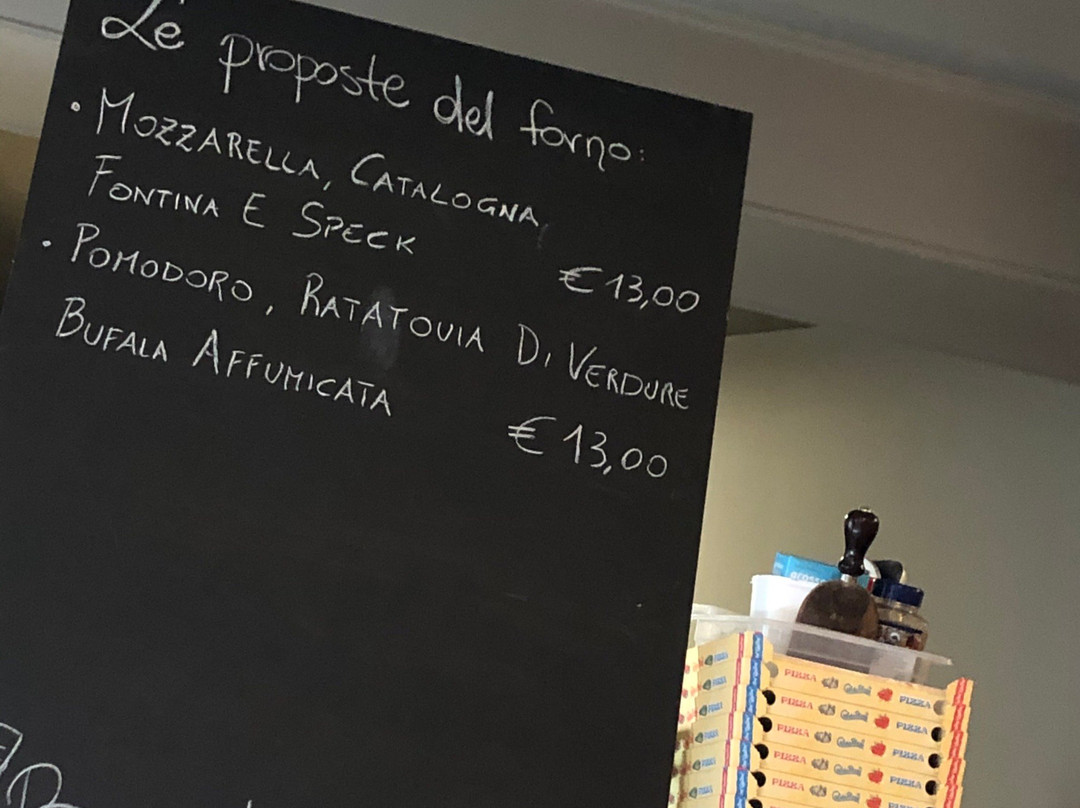 Le proposte del forno:
• MOZZARELLA, CATALOGNA,
FONTINA E SPECK
€ 13,00
• POMODORO, RATATOUIA DI VERDURE
BUFALA AFFUMICATA
€ 13,00
PIZZA PIZZA
PIZZA PIZZA
PIZZA PIZZA
PIZZA PIZZA
PIZZA PIZZA